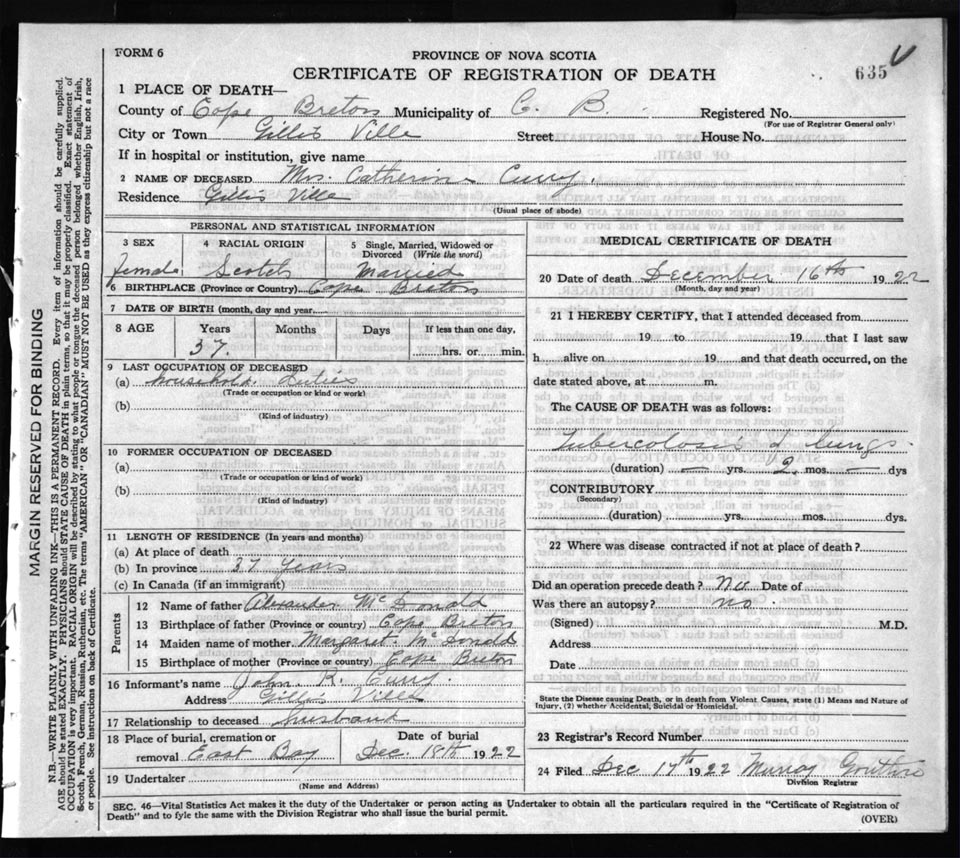 FORM 6
PROVINCE OF NOVA SCOTIA
CERTIFICATE OF REGISTRATION OF DEATH
635
1 PLACE OF DEATH—
County of Cape Breton Municipality of C. B. Registered No.
(For use of Registrar General only)
City or Town Gillis Ville Street House No.
If in hospital or institution, give name
2 NAME OF DECEASED Mrs. Catherine Curry.
Residence Gillis Ville
(Usual place of abode)
PERSONAL AND STATISTICAL INFORMATION
3 SEX 4 RACIAL ORIGIN 5 Single, Married, Widowed or Divorced (Write the word)
female Scotch Married
6 BIRTHPLACE (Province or Country) Cape Breton
7 DATE OF BIRTH (month, day and year)
8 AGE Years Months Days If less than one day,
37. hrs. or min.
9 LAST OCCUPATION OF DECEASED
(a) Household Duties
(Trade or occupation or kind or work)
(b)
(Kind of industry)
10 FORMER OCCUPATION OF DECEASED
(a)
(Trade or occupation or kind of work)
(b)
(Kind of industry)
11 LENGTH OF RESIDENCE (In years and months)
(a) At place of death
(b) In province 37 Years
(c) In Canada (if an immigrant)
Parents
12 Name of father Alexander McDonald
13 Birthplace of father (Province or country) Cape Breton
14 Maiden name of mother Margaret McDonald
15 Birthplace of mother (Province or country) Cape Breton
16 Informant's name John R. Curry.
Address Gillis Ville
17 Relationship to deceased husband
18 Place of burial, cremation or Date of burial
removal East Bay Dec. 18th 1922
19 Undertaker
(Name and Address)
MEDICAL CERTIFICATE OF DEATH
20 Date of death December 16th 1922
(Month, day and year)
21 I HEREBY CERTIFY, that I attended deceased from
19 to 19 that I last saw
h alive on 19 and that death occurred, on the
date stated above, at m.
The CAUSE OF DEATH was as follows:
Tubercolosis of lungs.
(duration) — yrs. 2. mos. — dys
CONTRIBUTORY
(Secondary)
(duration) yrs. mos. dys.
22 Where was disease contracted if not at place of death?
Did an operation precede death? No Date of
Was there an autopsy? no.
(Signed) M.D.
Address
Date
State the Disease causing Death, or in death from Violent Causes, state (1) Means and Nature of
Injury, (2) whether Accidental, Suicidal or Homicidal.
23 Registrar's Record Number
24 Filed Dec 17th 1922 Murray
Division Registrar
SEC. 46—Vital Statistics Act makes it the duty of the Undertaker or person acting as Undertaker to obtain all the particulars required in the "Certificate of Registration of
Death" and to fyle the same with the Division Registrar who shall issue the burial permit.
(OVER)
MARGIN RESERVED FOR BINDING
N.B.—WRITE PLAINLY WITH UNFADING INK—THIS IS A PERMANENT RECORD. Every item of information should be carefully supplied.
AGE should be stated EXACTLY. PHYSICIANS should STATE CAUSE OF DEATH in plain terms, so that it may be properly classified. Exact statement of
OCCUPATION is very important. RACIAL ORIGIN will be described by stating to what people or tongue the deceased person belonged whether English, Irish,
Scotch, French, German, Russian, Ruthenian, etc. The terms "AMERICAN" or "CANADIAN" MUST NOT BE USED as they express citizenship but not a race
or people. See instructions on back of Certificate.